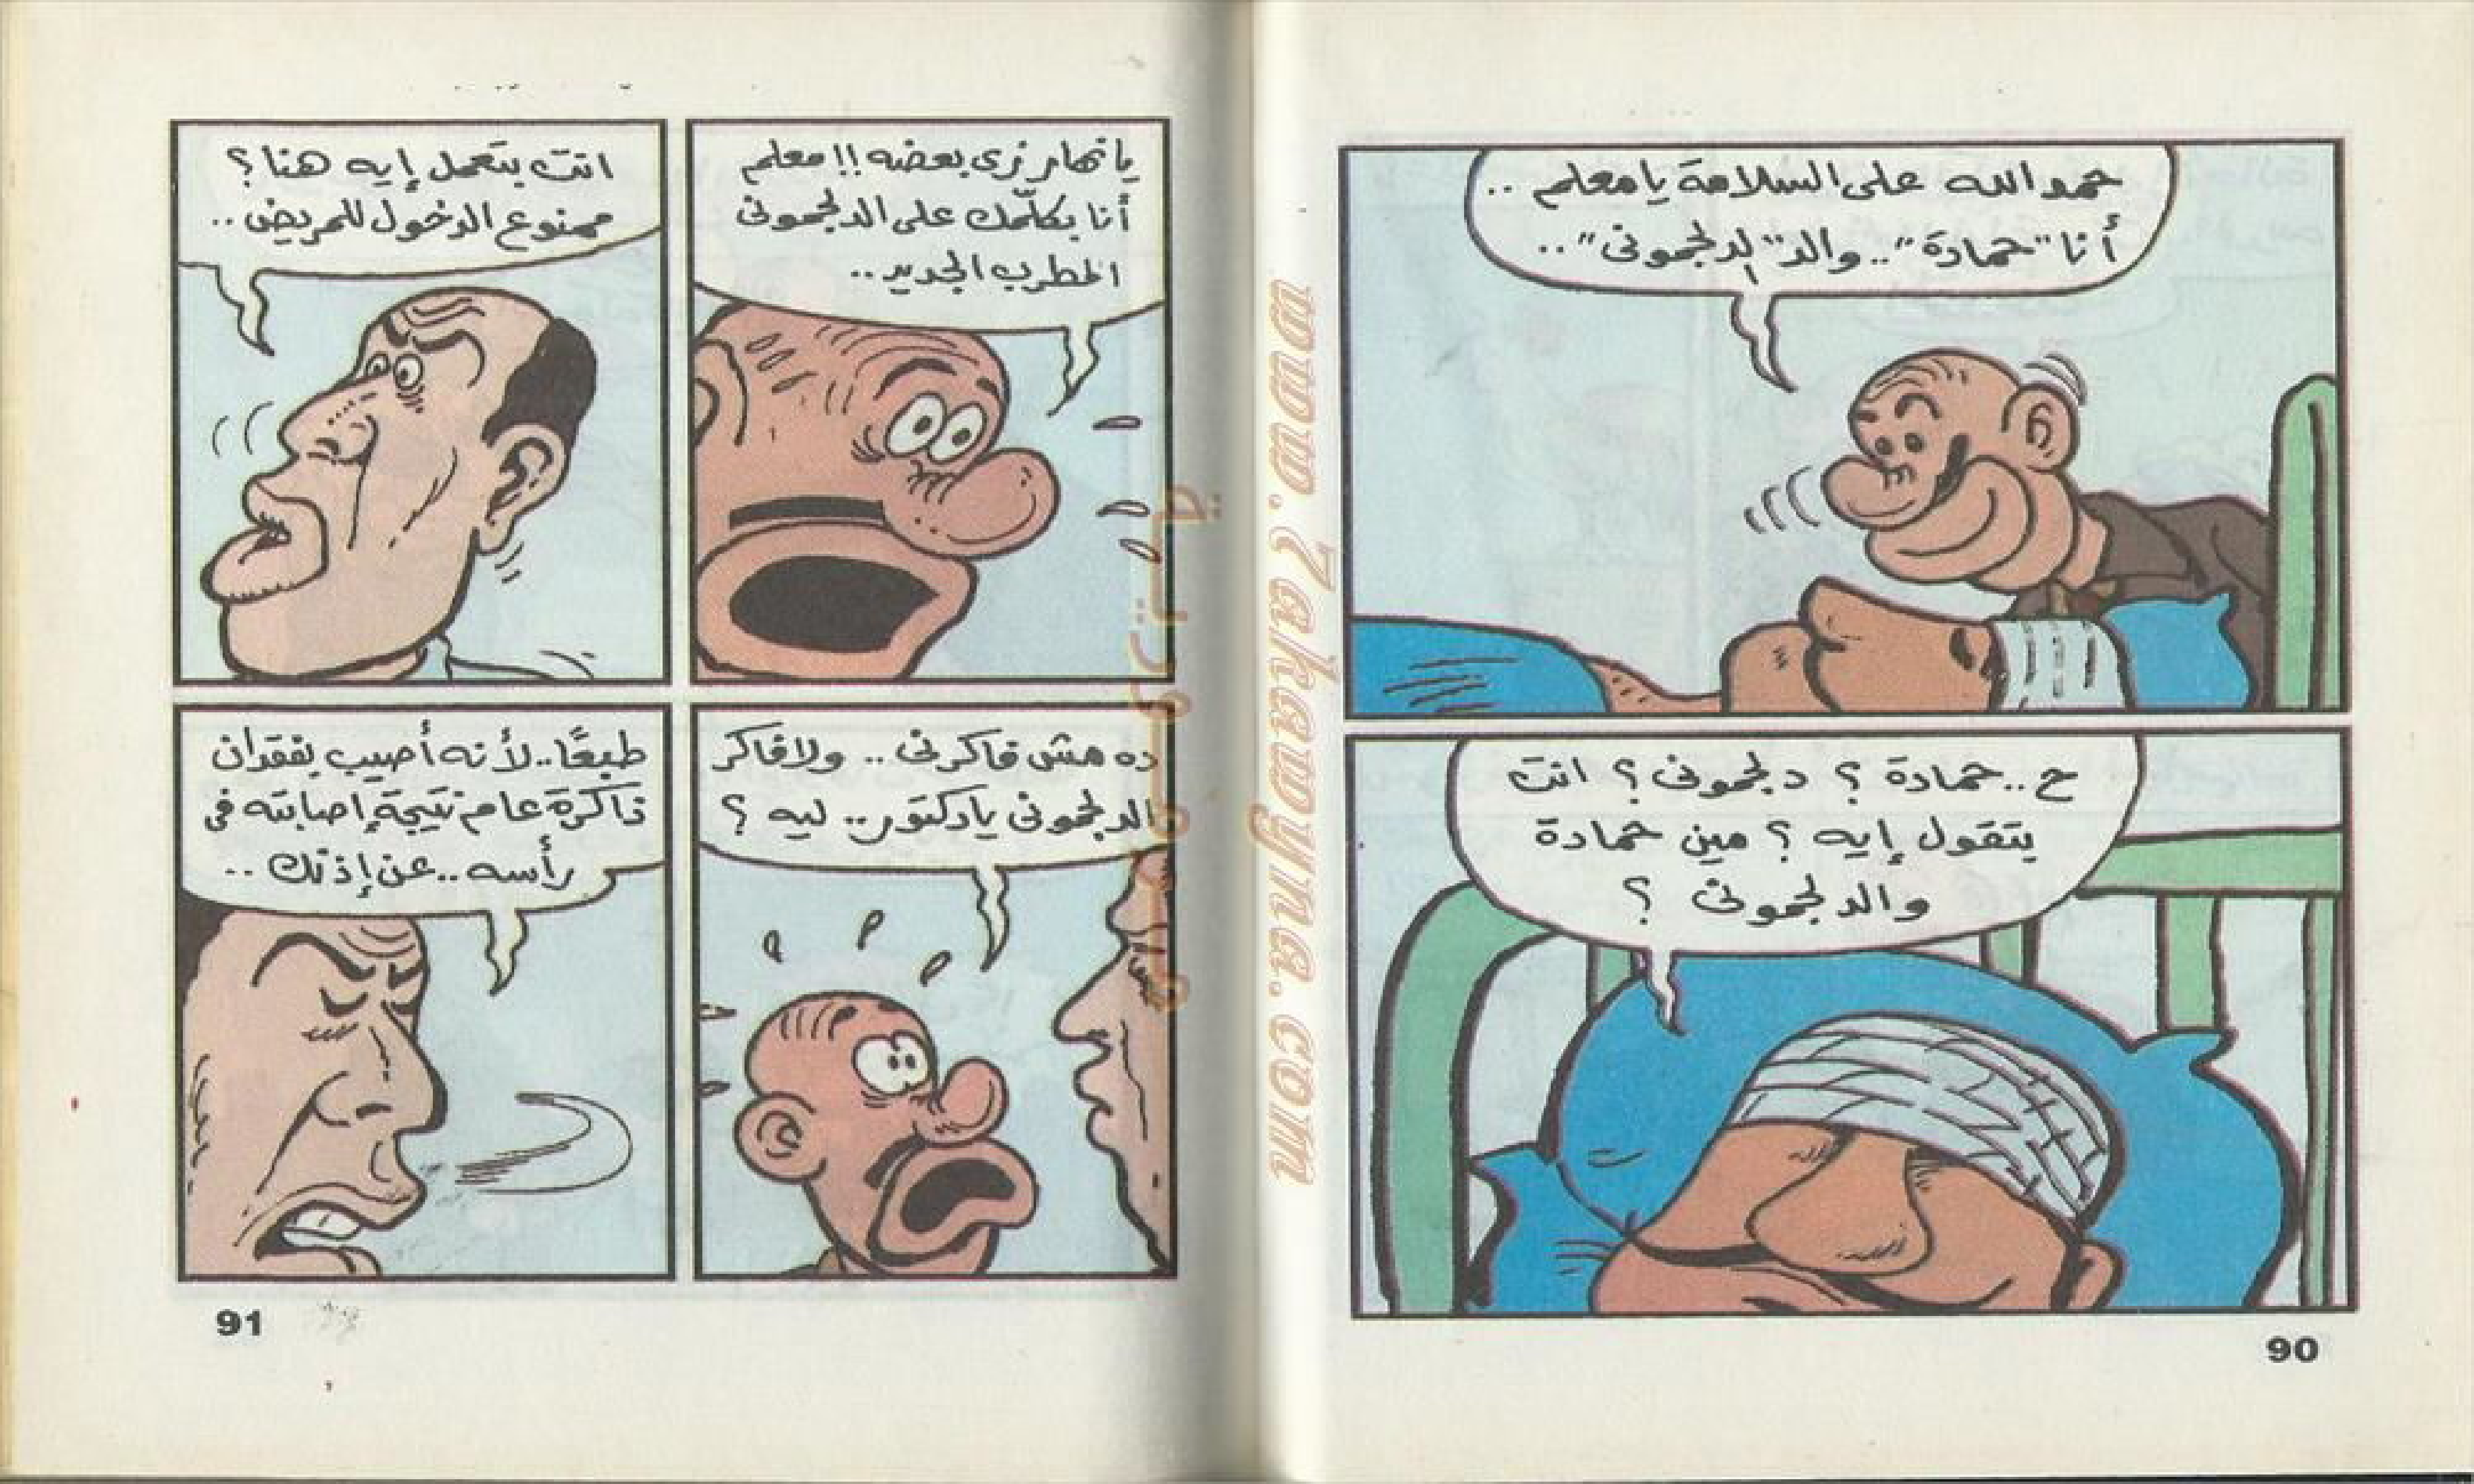 حمد الله على السلامة يا معلم ..
أنا "حمادة" .. والد "الدلجموني" ..
ح .. حمادة ؟ دلجموني ؟ انت
بتقول إيه ؟ مين حمادة
والدلجموني ؟
90
يا نهار زي بعضه !! معلم
أنا بكلّمك على الدلجموني
المطرب الجديد ..
انت بتعمل إيه هنا ؟
ممنوع الدخول للمريض ..
ده مش فاكرني .. ولا فاكر
الدلجموني يا دكتور .. ليه ؟
طبعًا .. لأنه أصيب بفقدان
ذاكرة عام نتيجة إصابته في
رأسه .. عن إذنك ..
91
www.Zakawyna.com